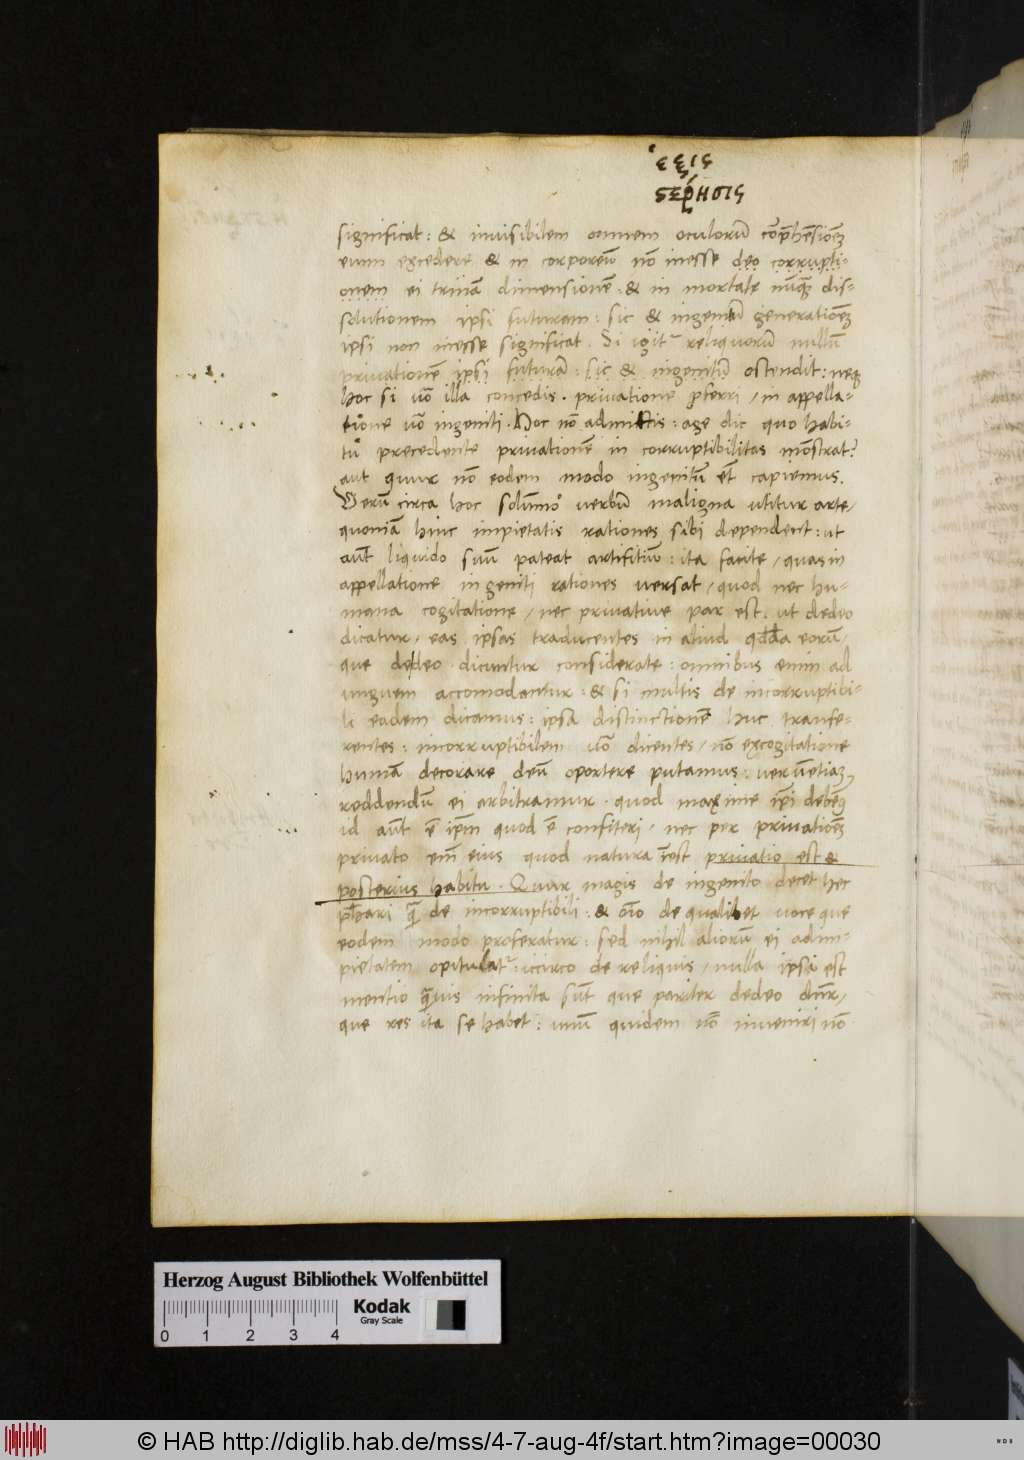 ἕξις
ςερησις
significat: & inuisibilem omnem oculorū cōp̄hēsionē
eum excedere & in corporeū nō inesse deo corrupti-
onem ei trinā dimensionē. & in mortale nūq̄ȝ dis-
solutionem ipsi futuram: sic & ingenitū generationē
ipsi non inesse significat. Si igit᷑ reliquorū nullū
priuationē ipsi futurā: sic & ingenitū ostendit: neqȝ
hoc si uo᷑ illa concedis. priuatione p̄ferri / in appella-
tione uo᷑ ingeniti. Hoc nō admittis: age dic quo habi-
tū precedente priuationē in corruptibilitas mōstrat?
aut quur nō eodem modo ingenitū et̄ capiemus.
Verū circa hoc solūmo᷑ uerbū maligna utitur arte /
quoniā hinc impietatis rationes sibi dependent: ut
aut̄ liquido suū pateat artifitiū: ita facite / quas in
appellatione ingeniti rationes uersat / quod nec hu-
mana cogitatione / nec priuatiue par est. ut dedeo
dicatur / eas ipsas traducentes in aliud eorū /
que dedeo dicuntur considerate: omnibus enim ad
unguem accomodantur: & si multis de incorruptibi-
li eadem dicamus: ipsa distinctionē huc transfe-
rentes: incorruptibilem uo᷑ dicentes / nō excogitatione
humā decorare deū oportere putamus: uerūetiaȝ
reddendū ei arbitramur. quod maxime ip̄i debēȝ
id aut̄ ē ip̄m quod ē confiteri / nec per priuationē
priuato em̄ eius quod natura īest priuatio est &
posterius habitu. Quur magis de ingenito decet hec
p̄hari q̄ de incorruptibili: & oīo de qualibet uoce que
eodem modo proferatur: sed nihil aliorū ei adim-
pietatem opitulat᷑: iccirco de reliquis / nulla ipsi est
mentio q̄uis infinita sūt que pariter dedeo dn̄r /
que res ita se habet: unū quidem nō inueniri nō
Herzog August Bibliothek Wolfenbüttel
0 1 2 3 4
Kodak
Gray Scale
© HAB http://diglib.hab.de/mss/4-7-aug-4f/start.htm?image=00030